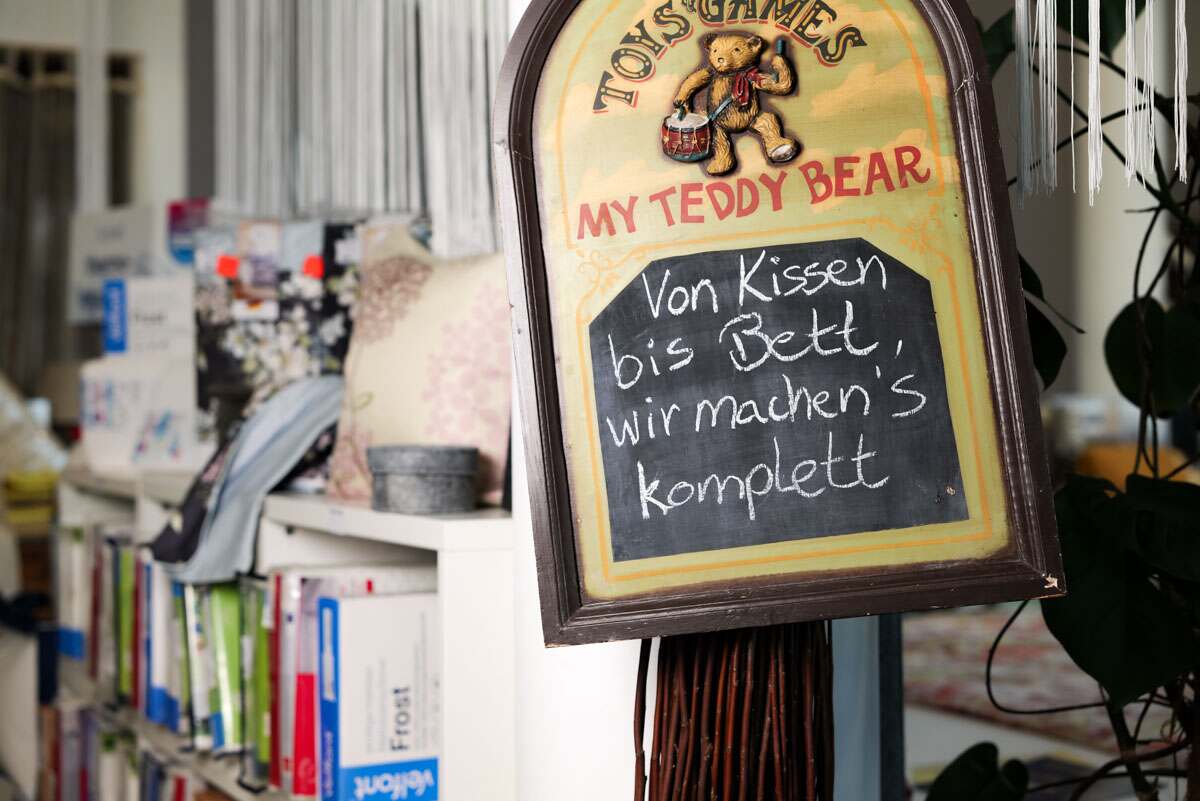 TOYS & GAMES
MY TEDDY BEAR
Von Kissen
bis Bett,
wir machen's
komplett
Frost
velfont